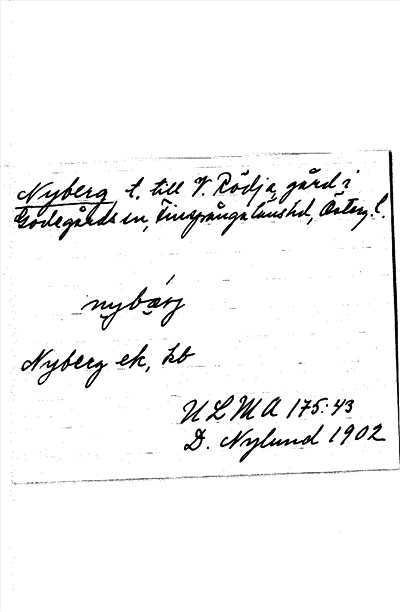 Nyberg, t. till V. Rödja gård i
Godegårds sn, Finspånga läns hd, Österg. l.
nybærj
Nyberg ek, kb
ULMA 175:43
D. Nylund 1902